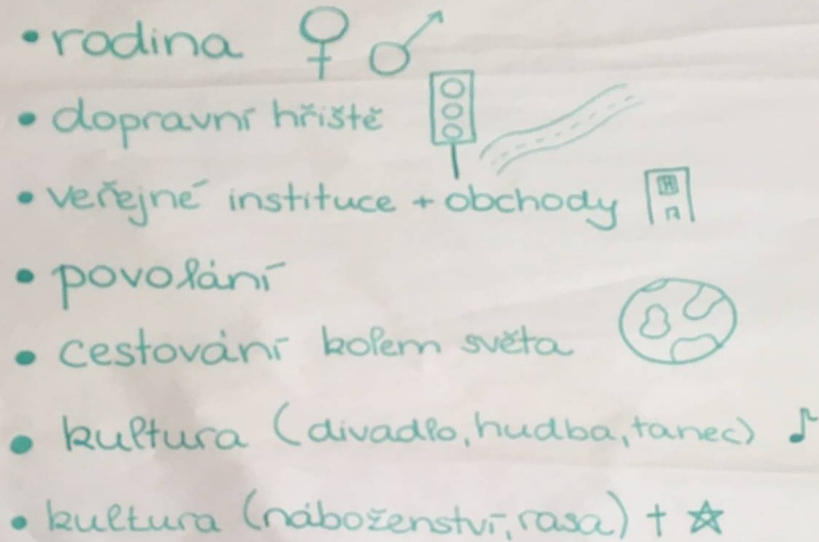 • rodina
• dopravní hřiště
• veřejné instituce + obchody
• povolání
• cestování kolem světa
• kultura (divadlo, hudba, tanec)
• kultura (náboženství, rasa)